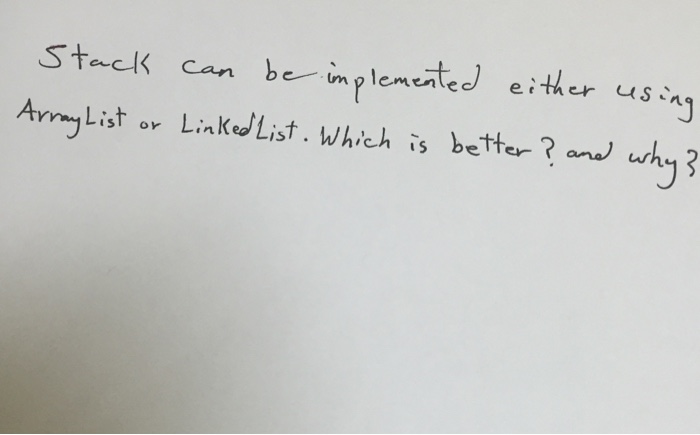 Stack can be implemented either using
ArrayList or LinkedList. Which is better? and why?